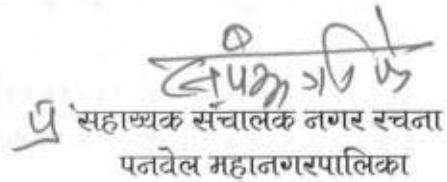 प्र सहाय्यक संचालक नगर रचना
पनवेल महानगरपालिका